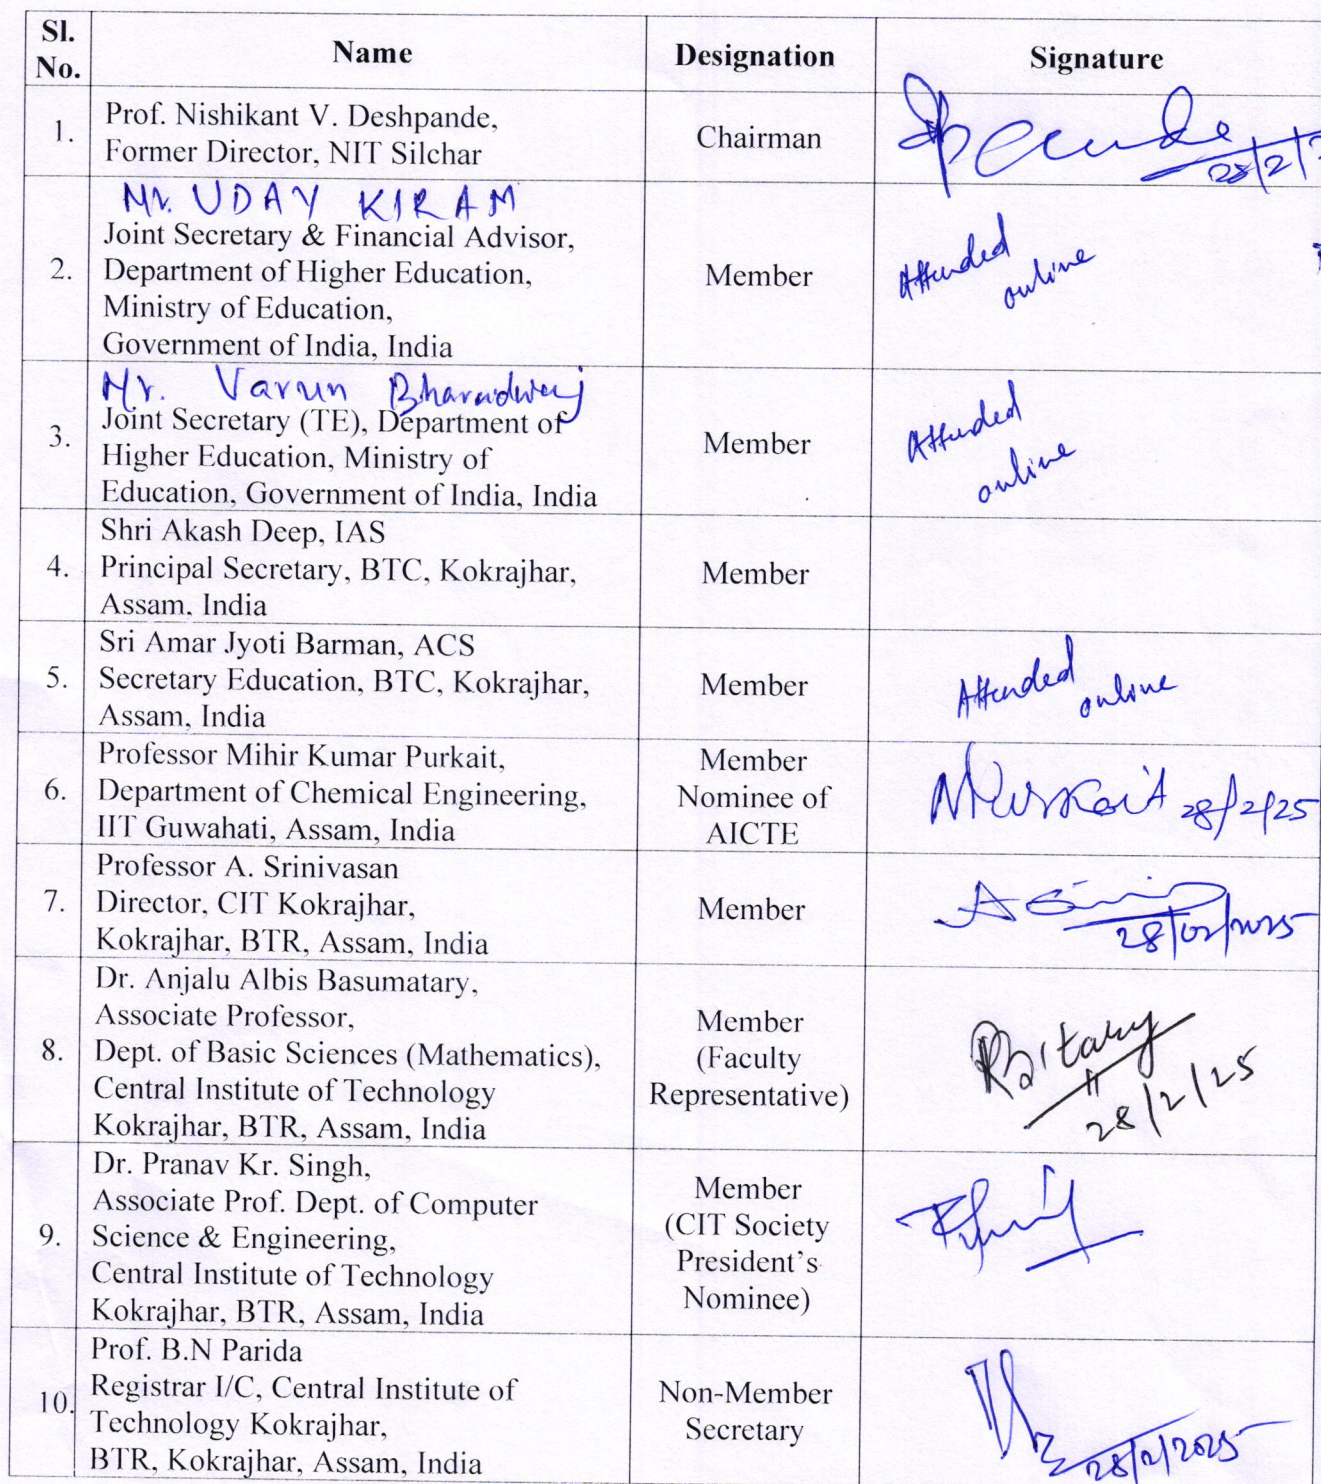 Sl. No. Name Designation Signature
1. Prof. Nishikant V. Deshpande,
Former Director, NIT Silchar
Chairman
28/2/
Mr. UDAY KIRAM
Joint Secretary & Financial Advisor,
2. Department of Higher Education,
Ministry of Education,
Government of India, India
Member
Attended
online
Mr. Varun Bharadwaj
Joint Secretary (TE), Department of
3. Higher Education, Ministry of
Education, Government of India, India
Member
Attended
online
Shri Akash Deep, IAS
4. Principal Secretary, BTC, Kokrajhar,
Assam, India
Member
Sri Amar Jyoti Barman, ACS
5. Secretary Education, BTC, Kokrajhar,
Assam, India
Member
Attended
online
Professor Mihir Kumar Purkait,
6. Department of Chemical Engineering,
IIT Guwahati, Assam, India
Member
Nominee of
AICTE
28/2/25
Professor A. Srinivasan
7. Director, CIT Kokrajhar,
Kokrajhar, BTR, Assam, India
Member
28/02/2025
Dr. Anjalu Albis Basumatary,
Associate Professor,
8. Dept. of Basic Sciences (Mathematics),
Central Institute of Technology
Kokrajhar, BTR, Assam, India
Member
(Faculty
Representative)
28/2/25
Dr. Pranav Kr. Singh,
Associate Prof. Dept. of Computer
9. Science & Engineering,
Central Institute of Technology
Kokrajhar, BTR, Assam, India
Member
(CIT Society
President's
Nominee)
Prof. B.N Parida
10. Registrar I/C, Central Institute of
Technology Kokrajhar,
BTR, Kokrajhar, Assam, India
Non-Member
Secretary
28/2/2025